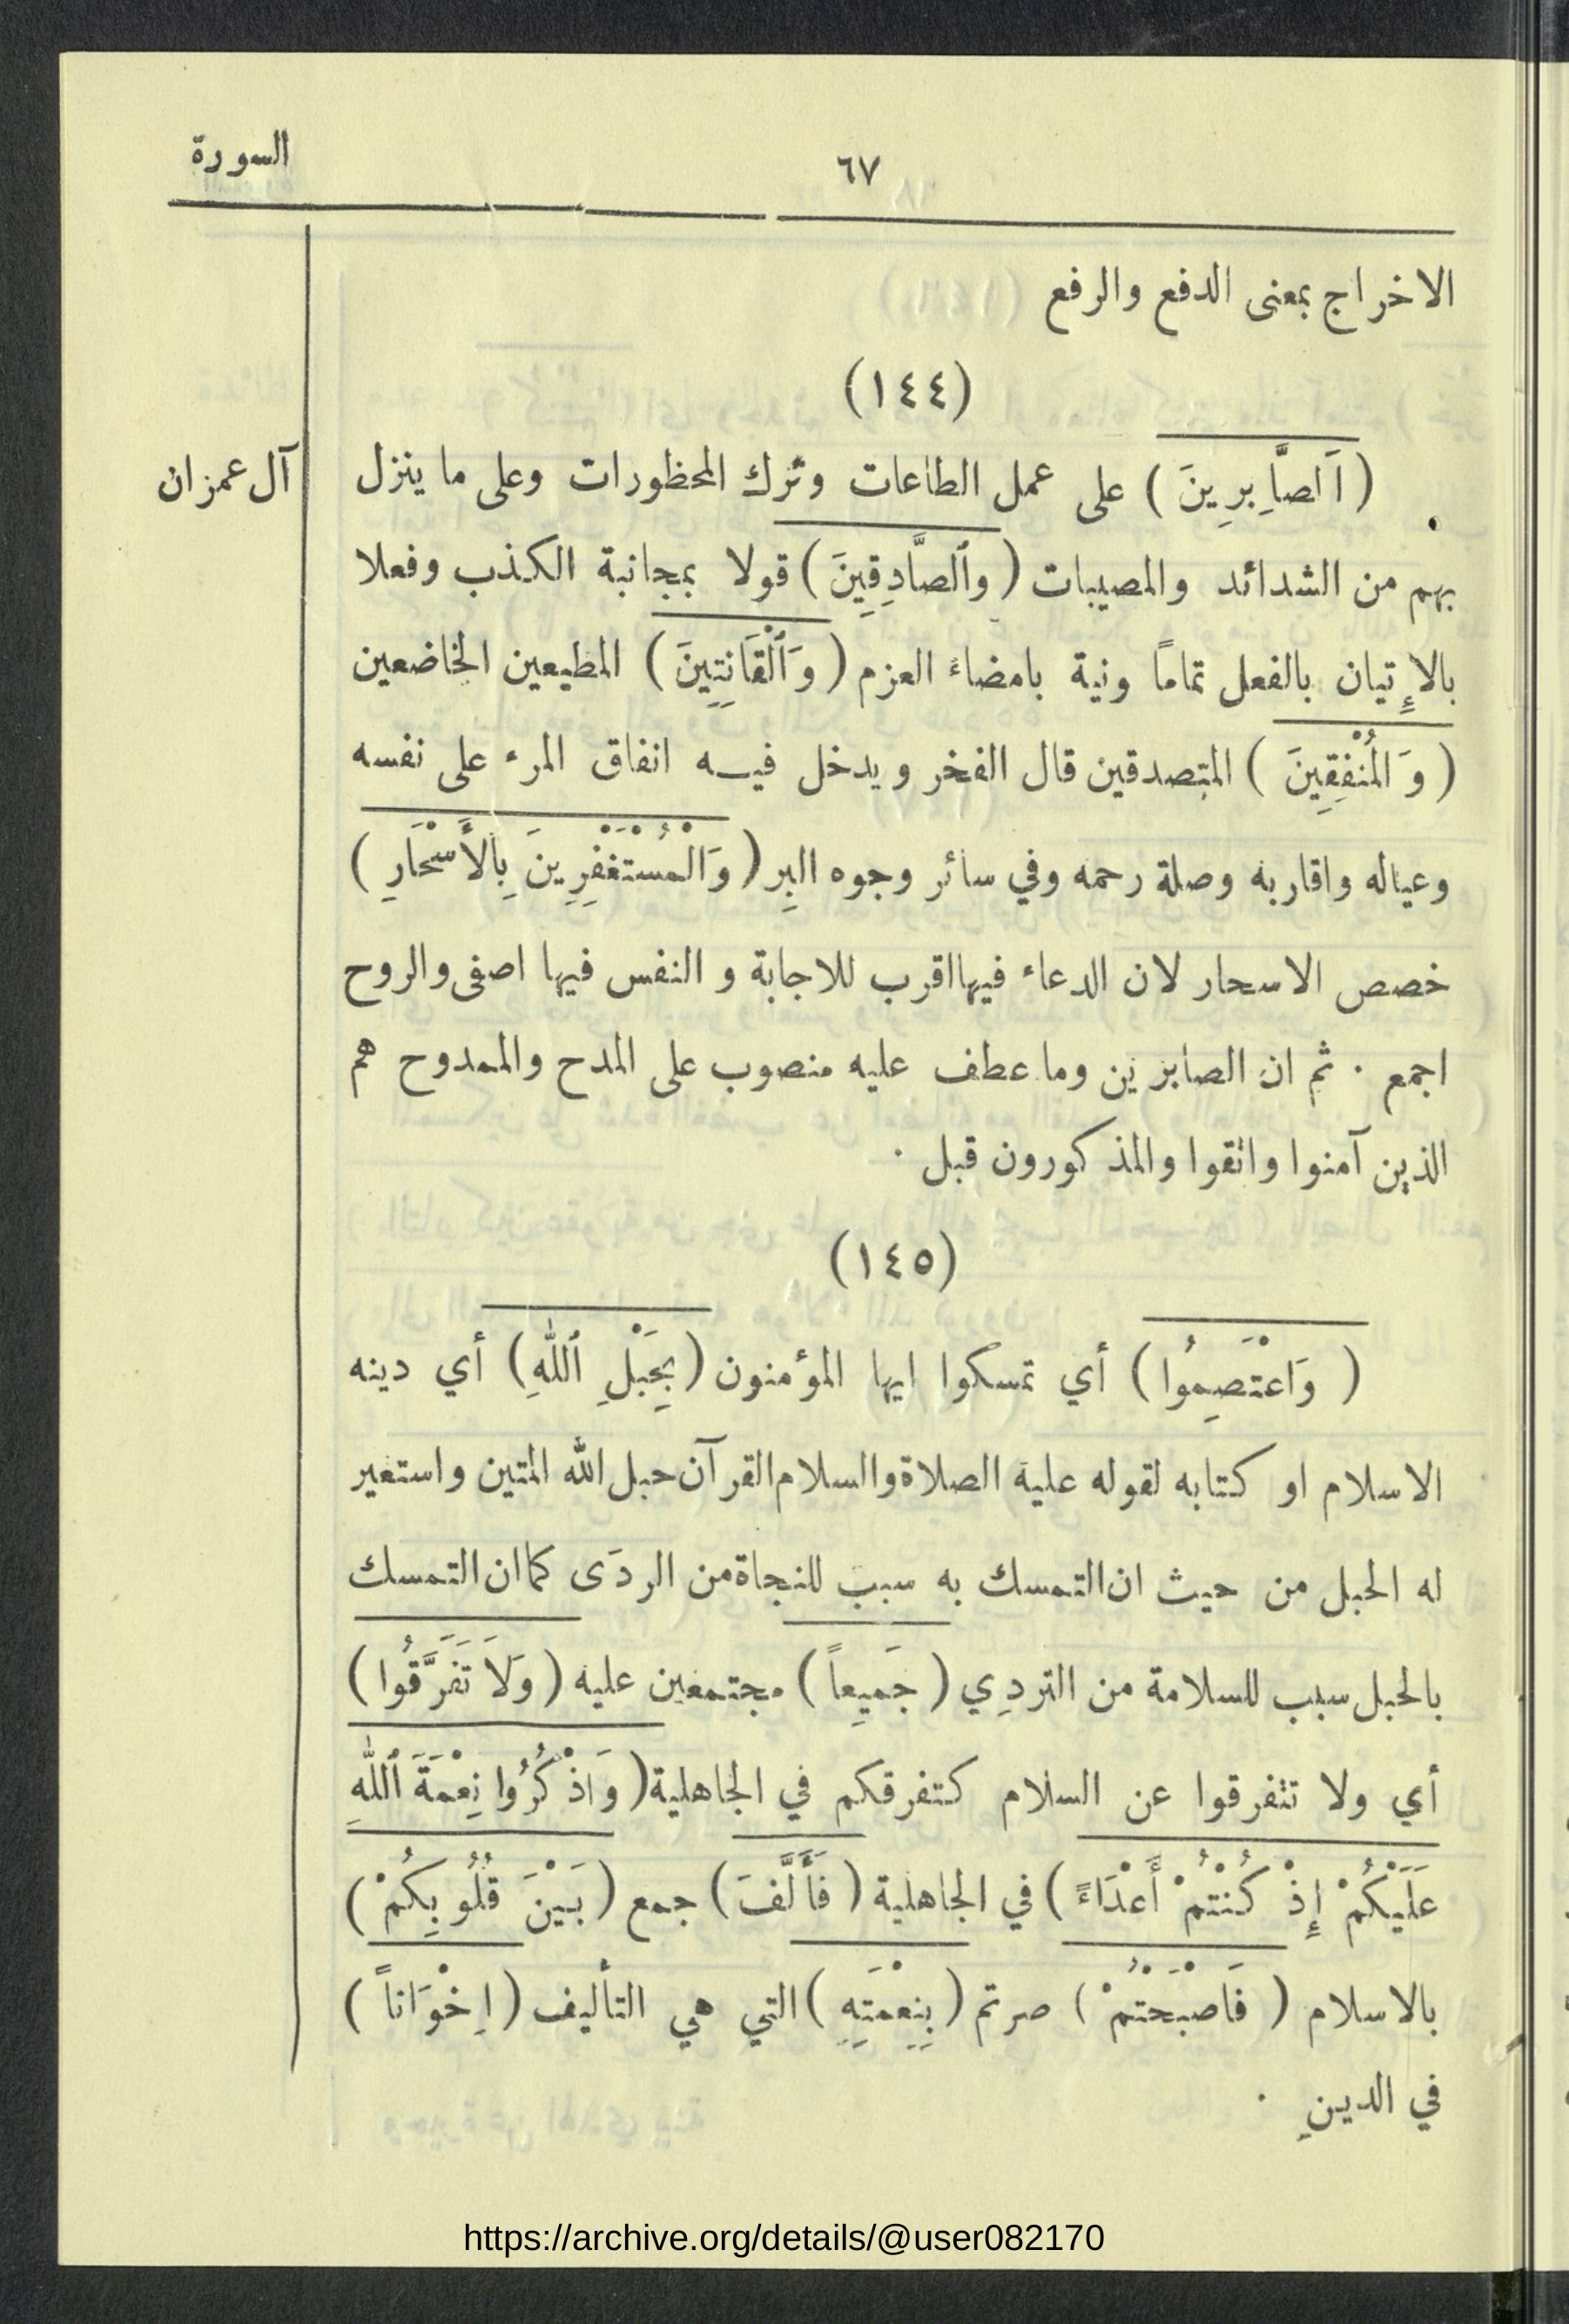 السورة
٦٧
الاخراج بمعنى الدفع والرفع
(١٤٤)
آل عمران
(اَلصَّابِرِينَ) على عمل الطاعات وترك المحظورات وعلى ما ينزل
بهم من الشدائد والمصيبات (وٱلصَّادِقِينَ) قولا بمجانبة الكذب وفعلا
بالإِتيان بالفعل تماماً ونية بامضاء العزم (وَٱلْقَانِتِينَ) المطيعين الخاضعين
(وَالْمُنْفِقِينَ) المتصدقين قال الفخر ويدخل فيه انفاق المرء على نفسه
وعياله واقاربه وصلة رحمه وفي سائر وجوه البِر (وَالْمُسْتَغْفِرِينَ بِالأَسْحَارِ)
خصص الاسحار لان الدعاء فيها اقرب للاجابة و النفس فيها اصفى والروح
اجمع . ثم ان الصابرين وما عطف عليه منصوب على المدح والممدوح هم
الذين آمنوا واتقوا والمذكورون قبل .
(١٤٥)
(وَاعْتَصِمُوا) أي تمسكوا ايها المؤمنون (بِحَبْلِ ٱللّٰهِ) أي دينه
الاسلام او كتابه لقوله عليه الصلاة والسلام القرآن حبل الله المتين واستعير
له الحبل من حيث ان التمسك به سبب للنجاة من الردَى كما ان التمسك
بالحبل سبب للسلامة من التردِي (جَمِيعاً) مجتمعين عليه (وَلَا تَفَرَّقُوا)
أي ولا تتفرقوا عن السلام كتفرقكم في الجاهلية (وَاذْكُرُوا نِعْمَةَ ٱللّٰهِ
عَلَيْكُمْ إِذْ كُنْتُمْ أَعْدَاءً) في الجاهلية (فَأَلَّفَ) جمع (بَيْنَ قُلُوبِكُمْ)
بالاسلام (فَاصْبَحْتُمْ) صرتم (بِنِعْمَتِهِ) التي هي التأليف (اِخْوَاناً)
في الدينِ .
https://archive.org/details/@user082170